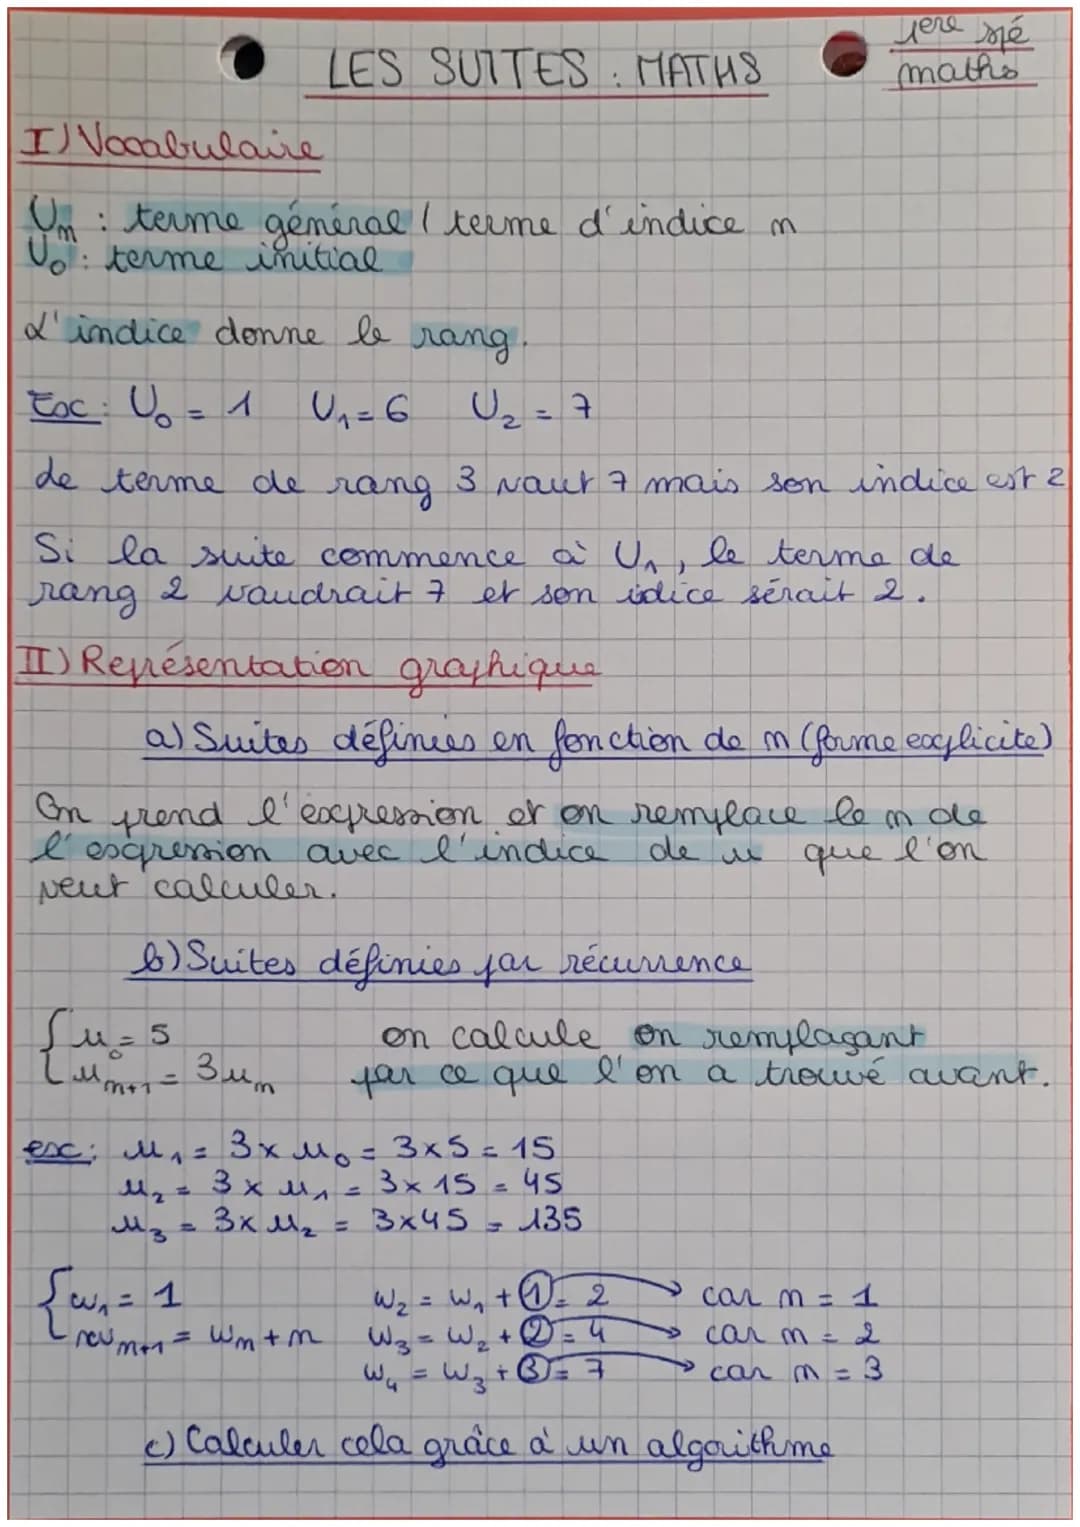 1ere spé
maths
LES SUITES : MATHS
I) Vocabulaire
Un : terme général / terme d'indice n
U0 : terme initial
L'indice donne le rang.
Ex : U0 = 1 U1 = 6 U2 = 7
Le terme de rang 3 vaut 7 mais son indice est 2
Si la suite commence à U1, le terme de
rang 2 vaudrait 7 et son idice sérait 2.
II) Représentation graphique
a) Suites définies en fonction de n (forme explicite)
On prend l'expression et on remplace le n de
l'expression avec l'indice de u que l'on
veut calculer.
b) Suites définies par récurrence
{ u0 = 5 on calcule en remplaçant
un+1 = 3un par ce que l'on a trouvé avant.
ex : u1 = 3 x u0 = 3 x 5 = 15
u2 = 3 x u1 = 3 x 15 = 45
u3 = 3 x u2 = 3 x 45 = 135
{ w1 = 1 w2 = w1 + 1 = 2 → car n = 1
wn+1 = wn + n w3 = w2 + 2 = 4 → car n = 2
w4 = w3 + 3 = 7 → car n = 3
c) Calculer cela grâce à un algorithme